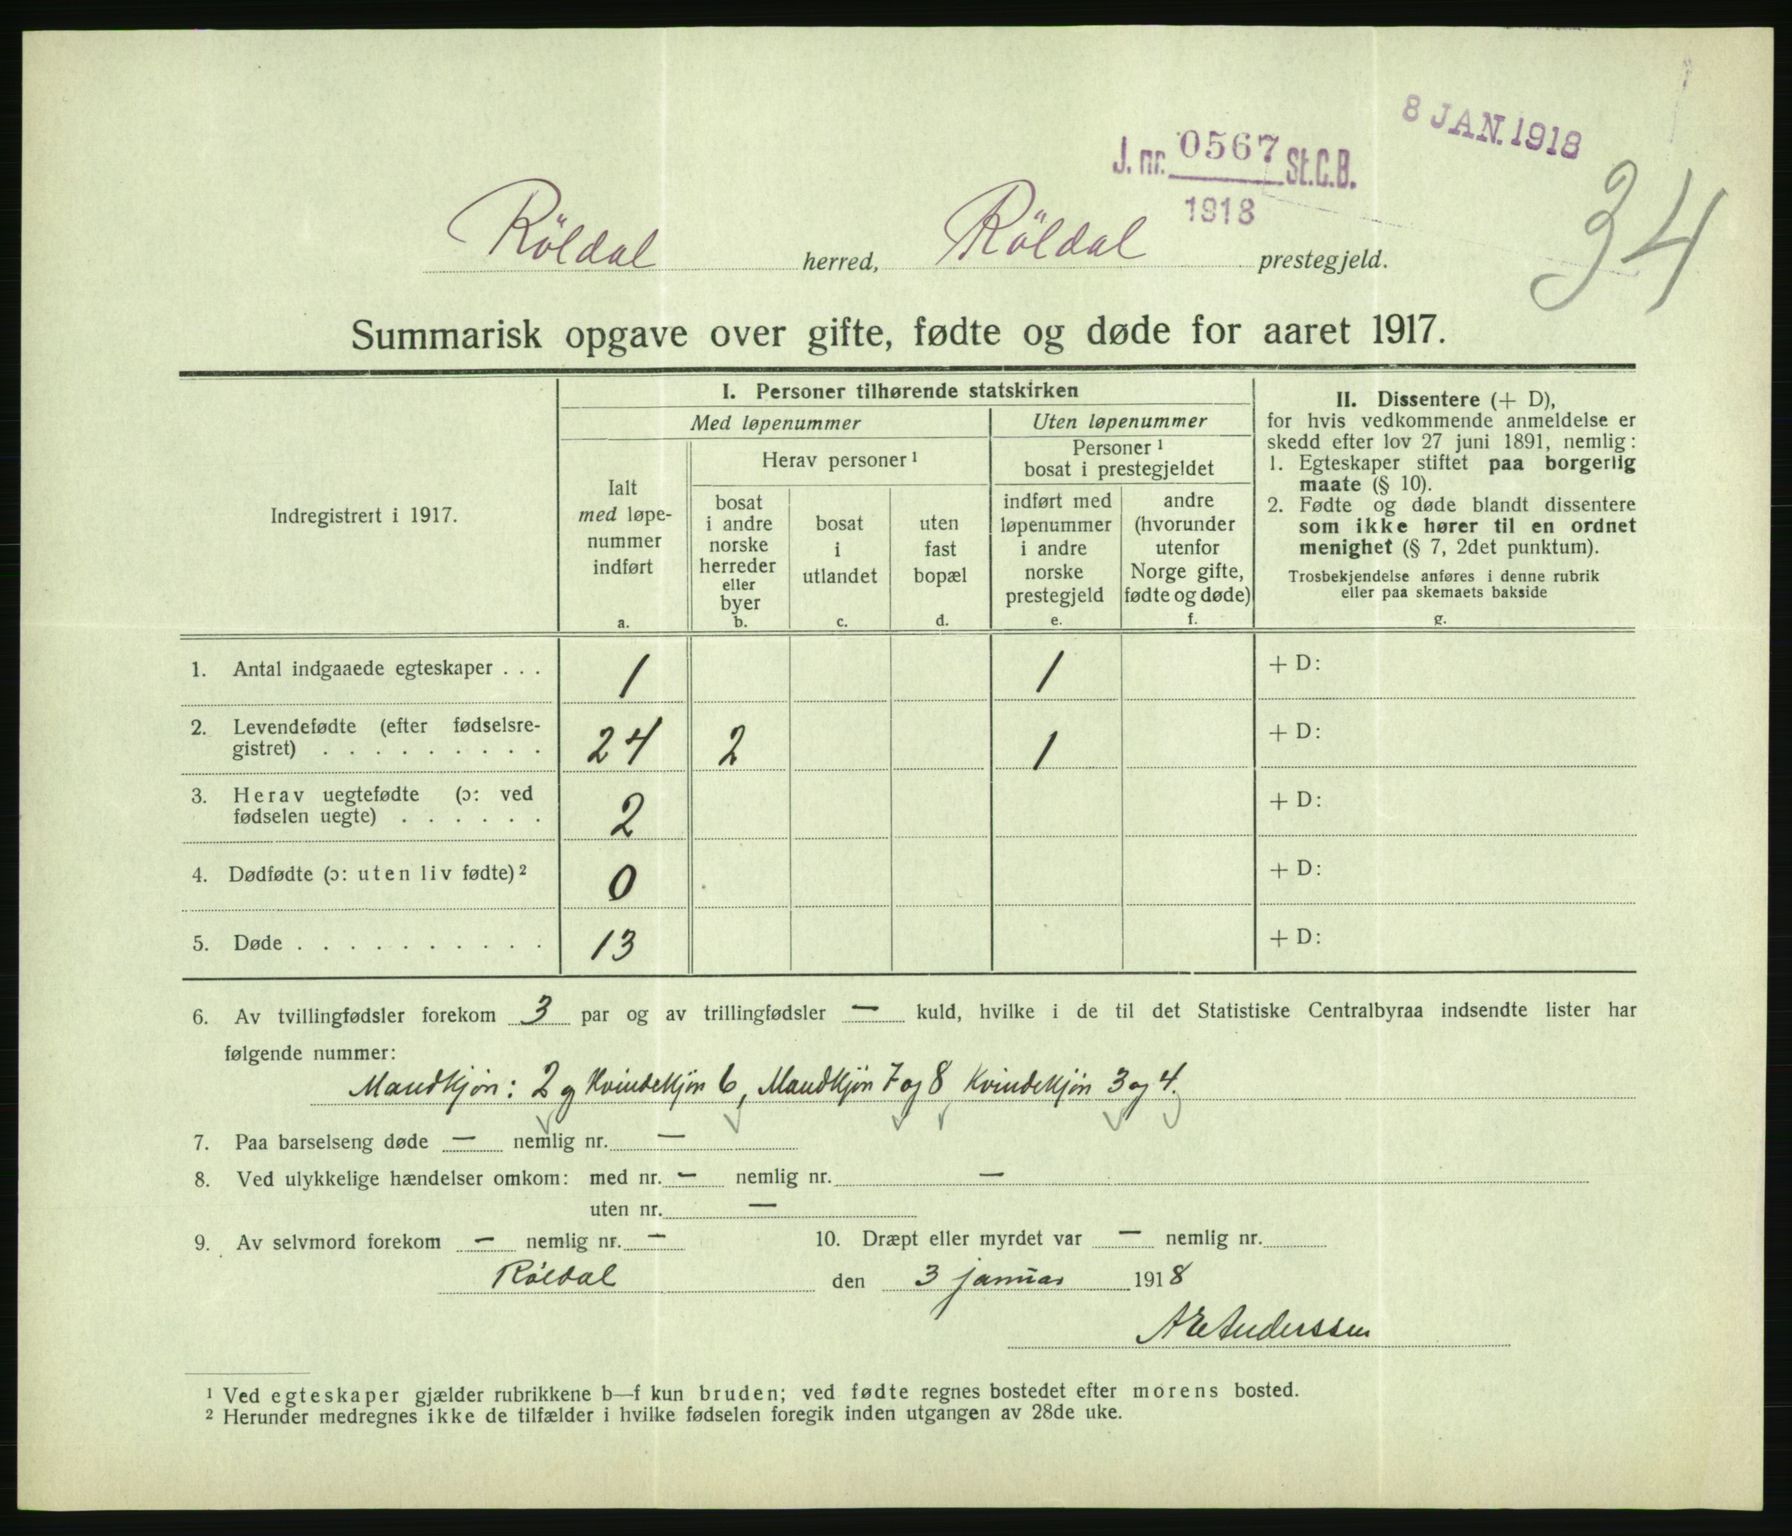 8 JAN. 1918
J. nr. 0567 St.C.B.
1918
34
Röldal herred, Röldal prestegjeld.
Summarisk opgave over gifte, fødte og døde for aaret 1917.
Indregistrert i 1917.
I. Personer tilhørende statskirken
Med løpenummer
Uten løpenummer
Ialt
med løpe-
nummer
indført
a.
Herav personer 1
bosat
i andre
norske
herreder
eller
byer
b.
bosat
i
utlandet
c.
uten
fast
bopæl
d.
Personer 1
bosat i prestegjeldet
indført med
løpenummer
i andre
norske
prestegjeld
e.
andre
(hvorunder
utenfor
Norge gifte,
fødte og døde)
f.
II. Dissentere (+ D),
for hvis vedkommende anmeldelse er
skedd efter lov 27 juni 1891, nemlig:
1. Egteskaper stiftet paa borgerlig
maate (§ 10).
2. Fødte og døde blandt dissentere
som ikke hører til en ordnet
menighet (§ 7, 2det punktum).
Trosbekjendelse anføres i denne rubrik
eller paa skemaets bakside
g.
1. Antal indgaaede egteskaper . . . 1 1 + D:
2. Levendefødte (efter fødselsre-
gistret) . . . . . . . . . 24 2 1 + D:
3. Herav uegtefødte (ɔ: ved
fødselen uegte) . . . . . . 2 + D:
4. Dødfødte (ɔ: uten liv fødte) 2 0 + D:
5. Døde . . . . . . . . . . 13 + D:
6. Av tvillingfødsler forekom 3 par og av trillingfødsler — kuld, hvilke i de til det Statistiske Centralbyraa indsendte lister har
følgende nummer:
Mandkjøn: 2 og Kvindekjøn 6, Mandkjøn 7 og 8, Kvindekjøn 3 og 4.
7. Paa barselseng døde — nemlig nr. —
8. Ved ulykkelige hændelser omkom: med nr. — nemlig nr. —
uten nr. —
9. Av selvmord forekom — nemlig nr. — 10. Dræpt eller myrdet var — nemlig nr.
Röldal den 3 januar 1918
A E Anderssen
1 Ved egteskaper gjælder rubrikkene b—f kun bruden; ved fødte regnes bostedet efter morens bosted.
2 Herunder medregnes ikke de tilfælder i hvilke fødselen foregik inden utgangen av 28de uke.